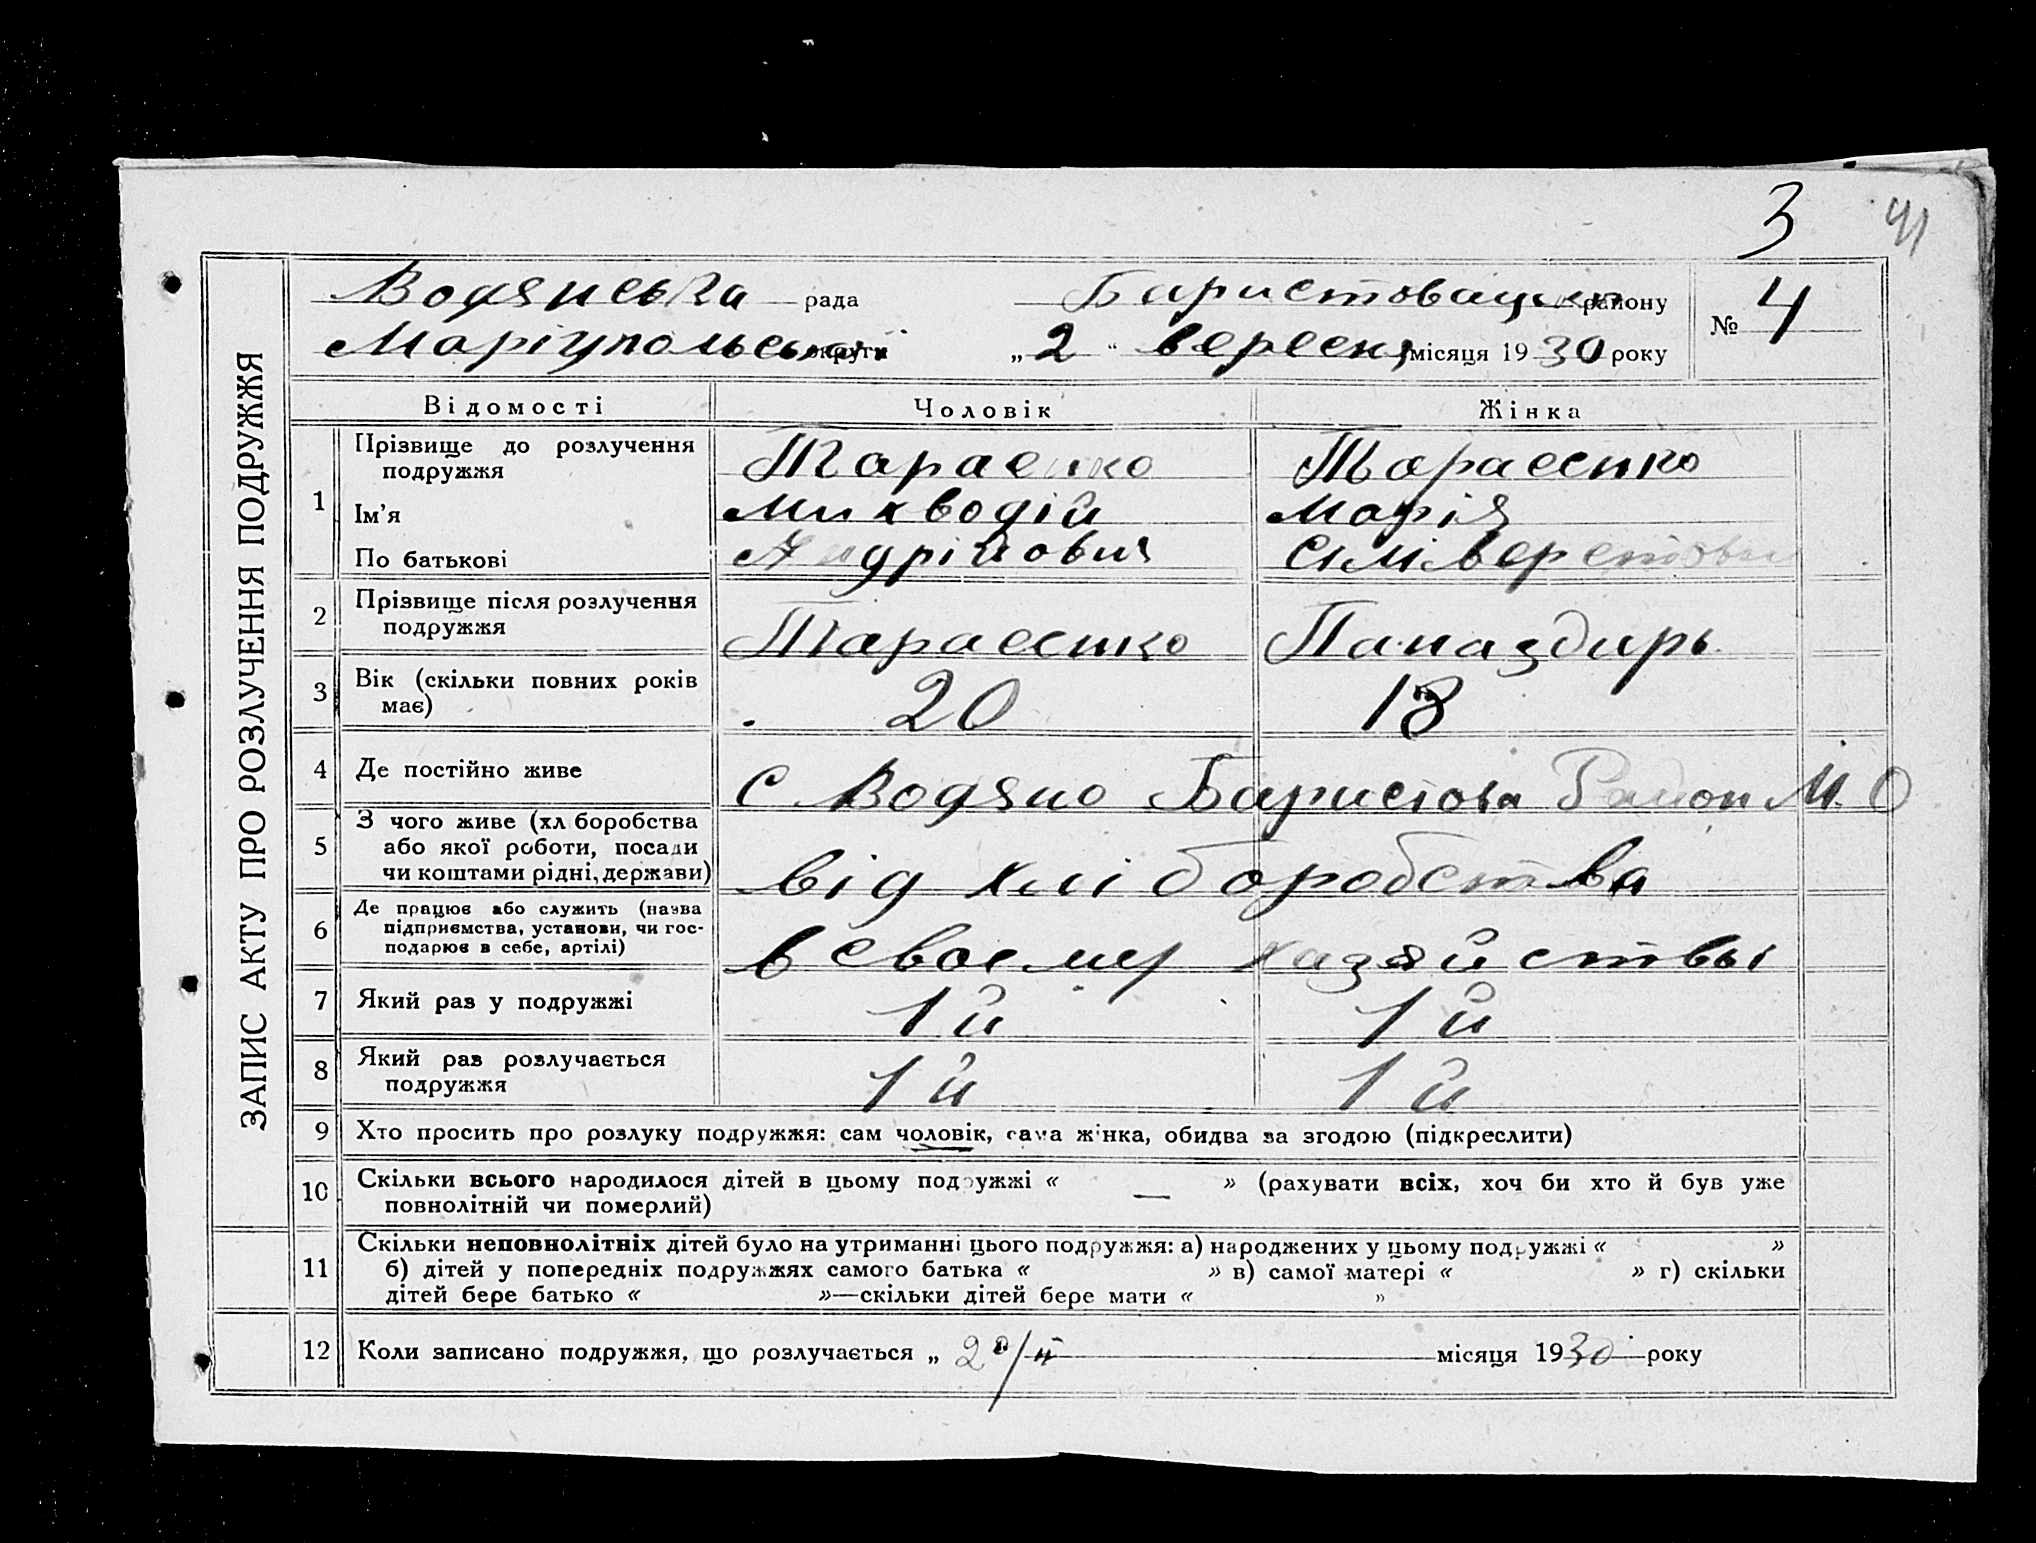 3 41
ЗАПИС АКТУ ПРО РОЗЛУЧЕННЯ ПОДРУЖЖЯ
Водянська рада району № 4
Маріупольської округи „ 2 " вересня місяця 1930 року
Відомості Чоловік Жінка
1 Прізвище до розлучення подружжя Тараенко Тараеенко
Ім'я Михводій Марія
По батькові Андрійович
2 Прізвище після розлучення подружжя Тараеенко Папаздирь
3 Вік (скільки повних років має) 20 18
4 Де постійно живе С Водяно Баристова Район М. О
5 З чого живе (хліборобства або якої роботи, посади чи коштами рідні, держави) від хліборобства
6 Де працює або служить (назва підприємства, установи, чи господарює в себе, артілі) в своему хазяйствы
7 Який раз у подружжі 1й 1й
8 Який раз розлучається подружжя 1й 1й
9 Хто просить про розлуку подружжя: сам чоловік, сама жінка, обидва за згодою (підкреслити)
10 Скільки всього народилося дітей в цьому подружжі « — » (рахувати всіх, хоч би хто й був уже
повнолітній чи померлий)
11 Скільки неповнолітніх дітей було на утриманні цього подружжя: а) народжених у цьому подружжі « »
б) дітей у попередніх подружжях самого батька « » в) самої матері « » г) скільки
дітей бере батько « »—скільки дітей бере мати « »
12 Коли записано подружжя, що розлучається „ місяця 1930 року